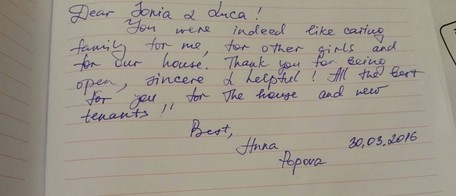 Dear Sonia & Luca!
You were indeed like caring
family for me, for other girls and
for our house. Thank you for being
open, sincere & helpful! All the best
for you, for the house and new
tenants!!
Best,
Anna 30.03.2016
Popova